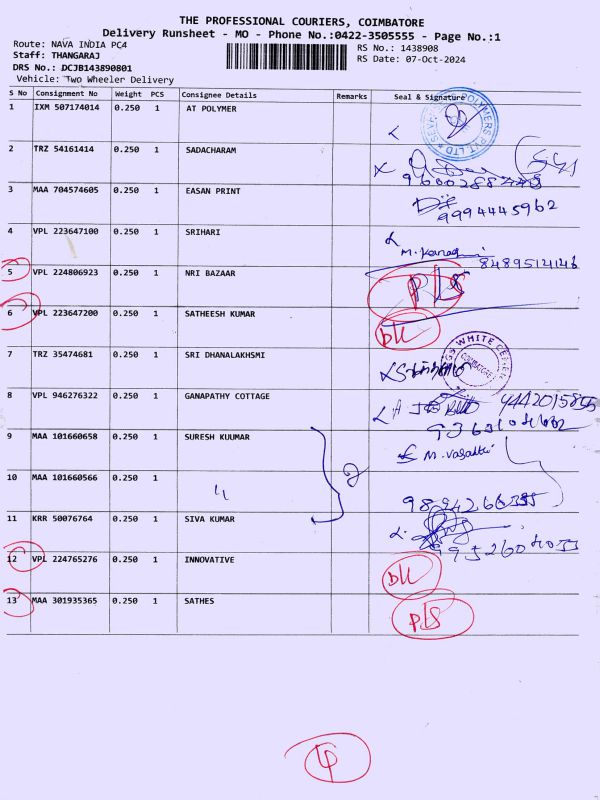 THE PROFESSIONAL COURIERS, COIMBATORE
Delivery Runsheet - MO - Phone No.:0422-3505555 - Page No.:1
Route: NAVA INDIA PC4
Staff: THANGARAJ
DRS No.: DCJB143890801
Vehicle: Two Wheeler Delivery
RS No.: 1438908
RS Date: 07-Oct-2024
S No Consignment No Weight PCS Consignee Details Remarks Seal & Signature
1 IXM 507174014 0.250 1 AT POLYMER
2 TRZ 54161414 0.250 1 SADACHARAM
3 MAA 704574605 0.250 1 EASAN PRINT
9994445962
4 VPL 223647100 0.250 1 SRIHARI
8489514146
5 VPL 224806923 0.250 1 NRI BAZAAR
P/S
6 VPL 223647200 0.250 1 SATHEESH KUMAR
DL
7 TRZ 35474681 0.250 1 SRI DHANALAKHSMI
WHITE
COIMBATORE
8 VPL 946276322 0.250 1 GANAPATHY COTTAGE
9 MAA 101660658 0.250 1 SURESH KUUMAR
2
10 MAA 101660566 0.250 1 "
11 KRR 50076764 0.250 1 SIVA KUMAR
12 VPL 224765276 0.250 1 INNOVATIVE
DL
13 MAA 301935365 0.250 1 SATHES
P/S
4